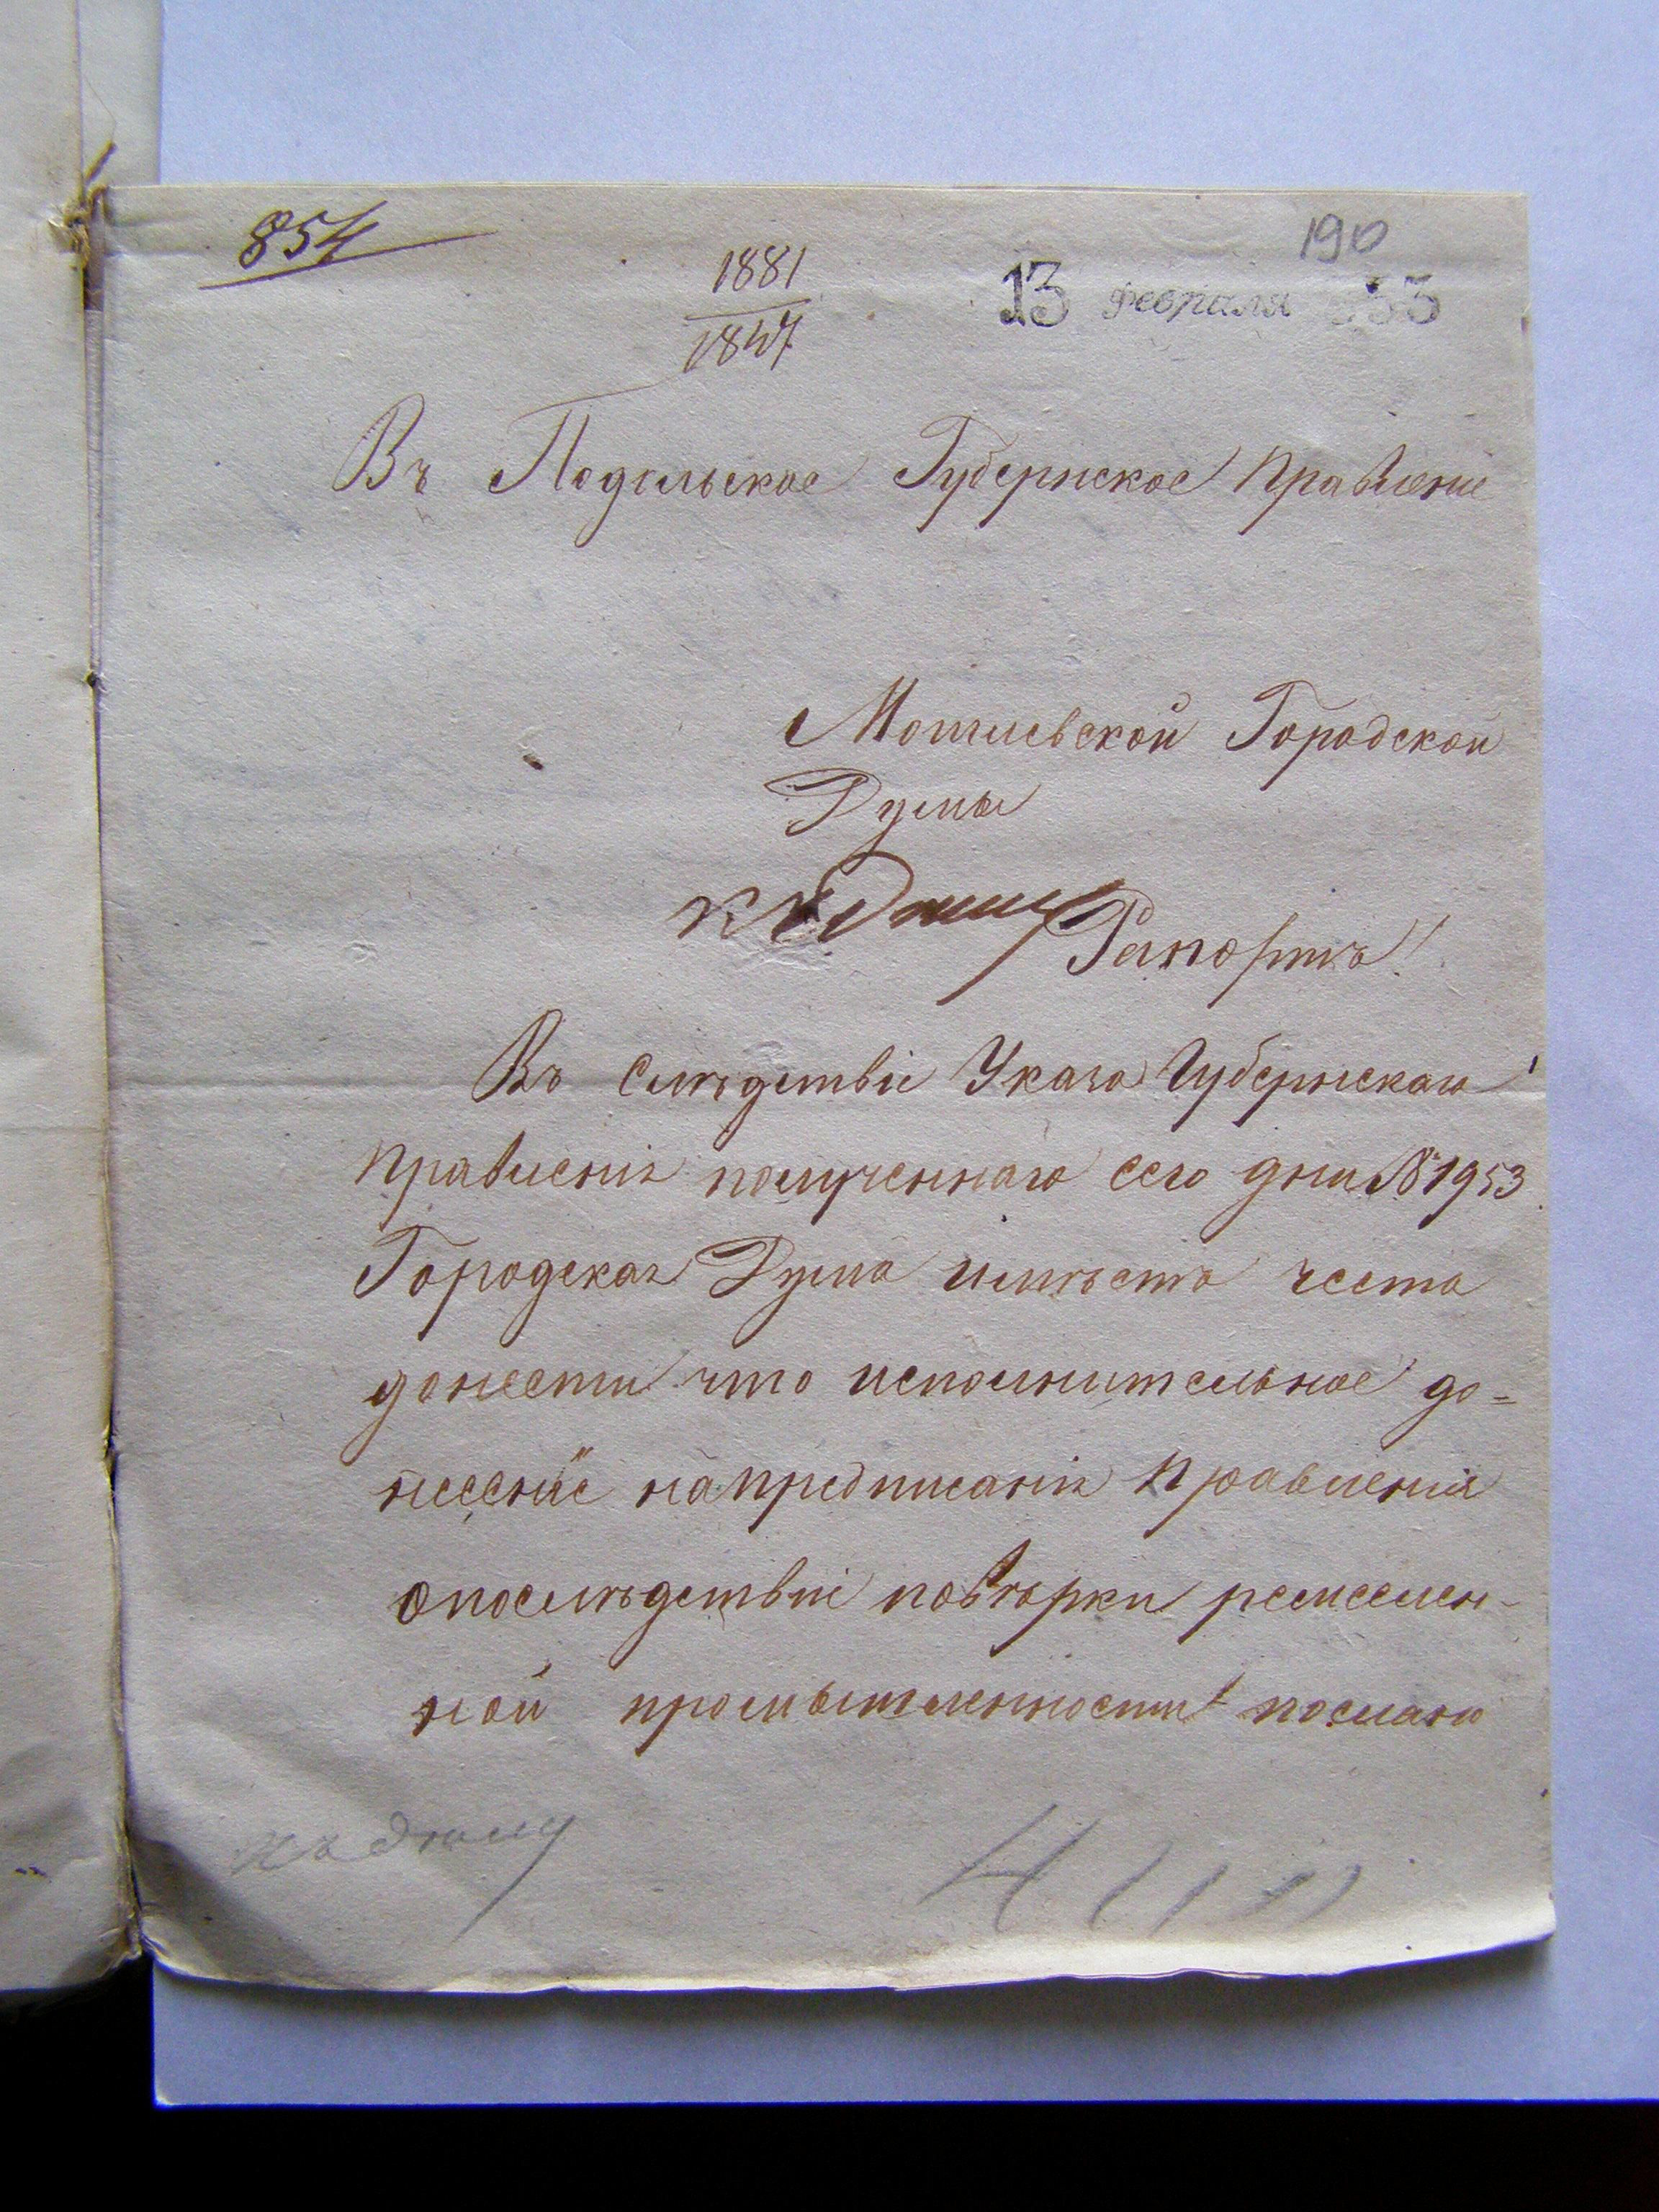 854
190
1881
1847
13 февраля 53
Въ Подольское Губернское Правленіе
Могилевской Городской
Думы
Рапортъ!
Въ слѣдствіе Указа Губернскаго
Правленія полученнаго сего дня № 1953
Городская Дума имѣетъ честь
донести что исполнительное до=
несеніе на предписанія Правленія
о послѣдствіи повѣрки ремеслен-
ной промышленности послано
къ дѣлу